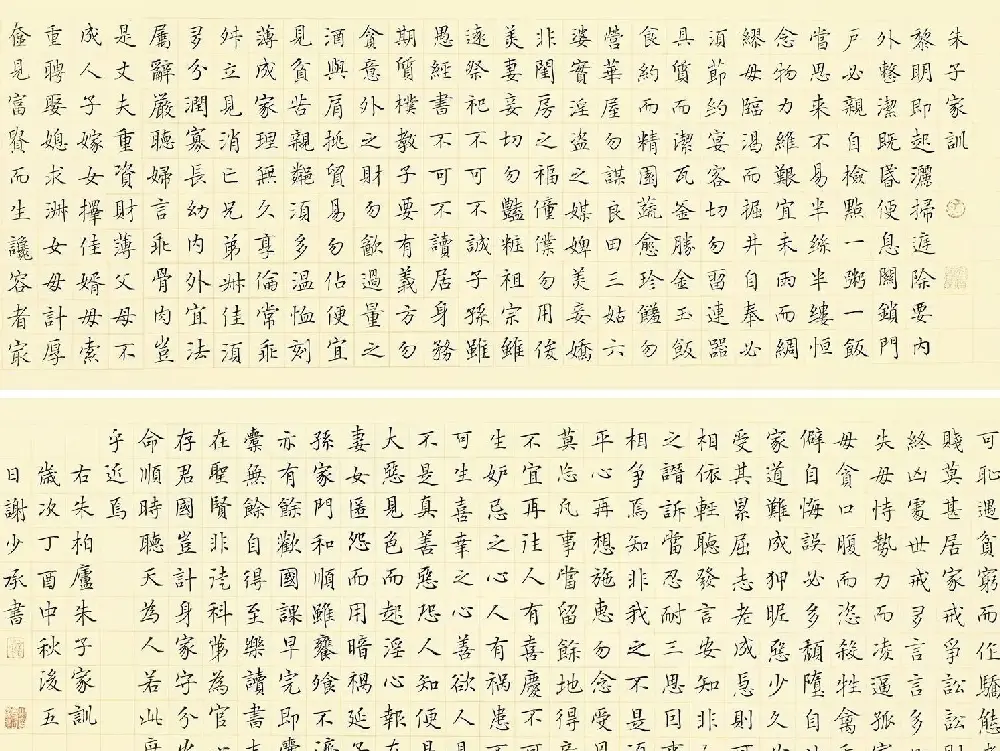 朱子家訓
黎明即起灑掃庭除要内
外整潔既昏便息關鎖門
户必親自檢點一粥一飯
當思來不易半絲半縷恒
念物力維艱宜未雨而綢
繆毋臨渴而掘井自奉必
須節約宴客切勿留連器
具質而潔瓦釜勝金玉飯
食約而精園蔬愈珍饈勿
營華屋勿謀良田三姑六
婆實淫盜之媒婢美妾嬌
非閨房之福僮僕勿用俊
美妻妾切勿豔粧祖宗雖
遠祭祀不可不誠子孫雖
愚經書不可不讀居身務
期質樸教子要有義方勿
貪意外之財勿飲過量之
酒與肩挑貿易勿佔便宜
見貧苦親鄰須多溫恤刻
薄成家理無久享倫常乖
舛立見消亡兄弟叔侄須
多分潤寡長幼内外宜法
屬辭嚴聽婦言乖骨肉豈
是丈夫重資財薄父母不
成人子嫁女擇佳婿毋索
重聘娶媳求淑女毋計厚
奩見富貴而生讒容者最
可恥遇貧窮而作驕態
賤莫甚居家戒爭訟訟
終凶處世戒多言言多
失毋恃勢力而凌逼孤
毋貪口腹而恣殺牲禽
僻自悔誤必多頹墮自
家道難成狎昵惡少久
受其累屈志老成急則
相依輕聽發言安知非
之譖訴當忍耐三思因
相爭焉知非我之不是
平心再想施惠勿念受
莫忘凡事當留餘地得
不宜再往人有喜慶不
生妒忌之心人有禍患不
可生喜幸之心善欲人
不是真善惡恐人知便
大惡見色而起淫心報
妻女匿怨而用暗禍延
孫家門和順雖饔飧不
亦有餘歡國課早完即
橐無餘自得至樂讀書
在聖賢非徒科第為官
存君國豈計身家守分
命順時聽天為人若此
乎近焉
右朱柏廬朱子家訓
歲次丁酉中秋後五
日謝少承書